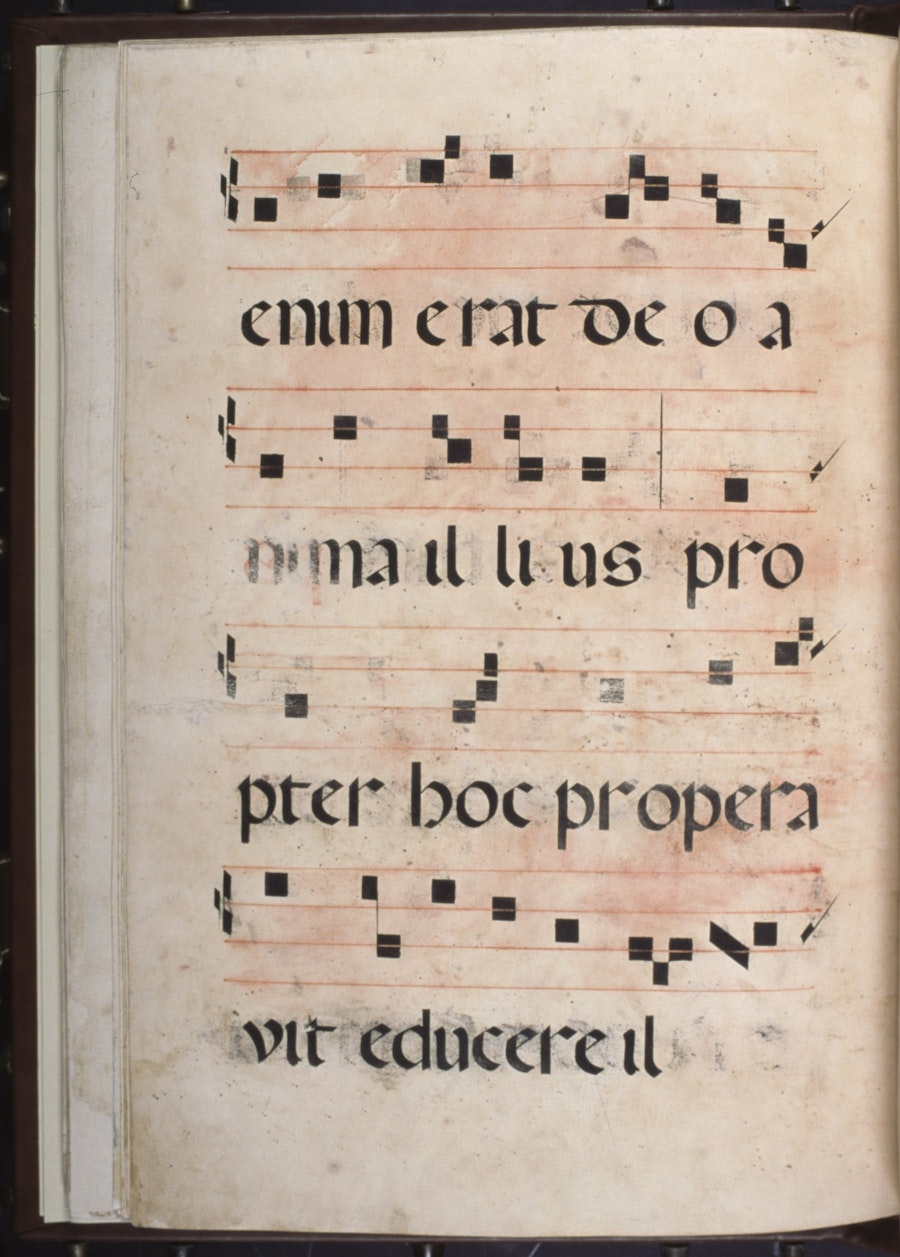 enim erat de o a
nima il li us pro
pter hoc propera
vit educere il